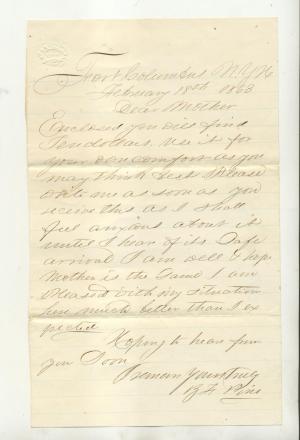 Fort Columbus N.Y.H
February 18th 1863
Dear Mother
Enclosed you will find
Ten dollars. Use it for
your own comfort as you
may think best Please
write me as soon as you
receive this as I shall
feel anxious about it
until I hear of its safe
arrival I am well & hope
Mother is the same I am
pleased with my situation
here much better than I ex
pected
Hoping to hear from
you Soon
I remain Yours truly